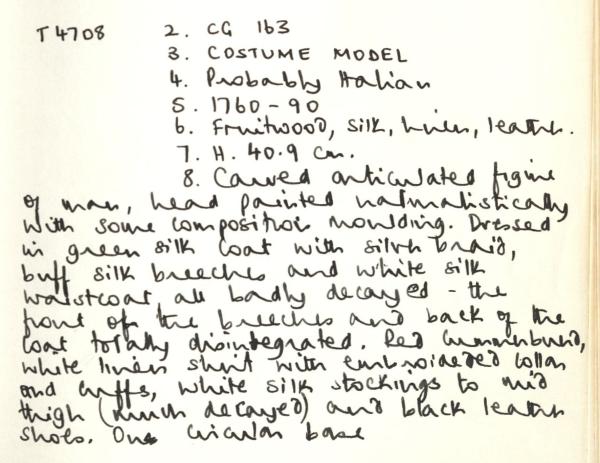 T4708 2. CG 163
3. COSTUME MODEL
4. Probably Italian
5. 1760-90
6. Fruitwood, silk, linen, leather.
7. H. 40.9 cm.
8. Carved articulated figure
of man, head painted naturalistically
with some composition moulding. Dressed
in green silk coat with silver braid,
buff silk breeches and white silk
waistcoat, all badly decayed - the
front of the breeches and back of the
coat totally disintegrated. Red cummerbund,
white linen shirt with embroidered collar
and cuffs, white silk stockings to mid
thigh (much decayed) and black leather
shoes. One circular base